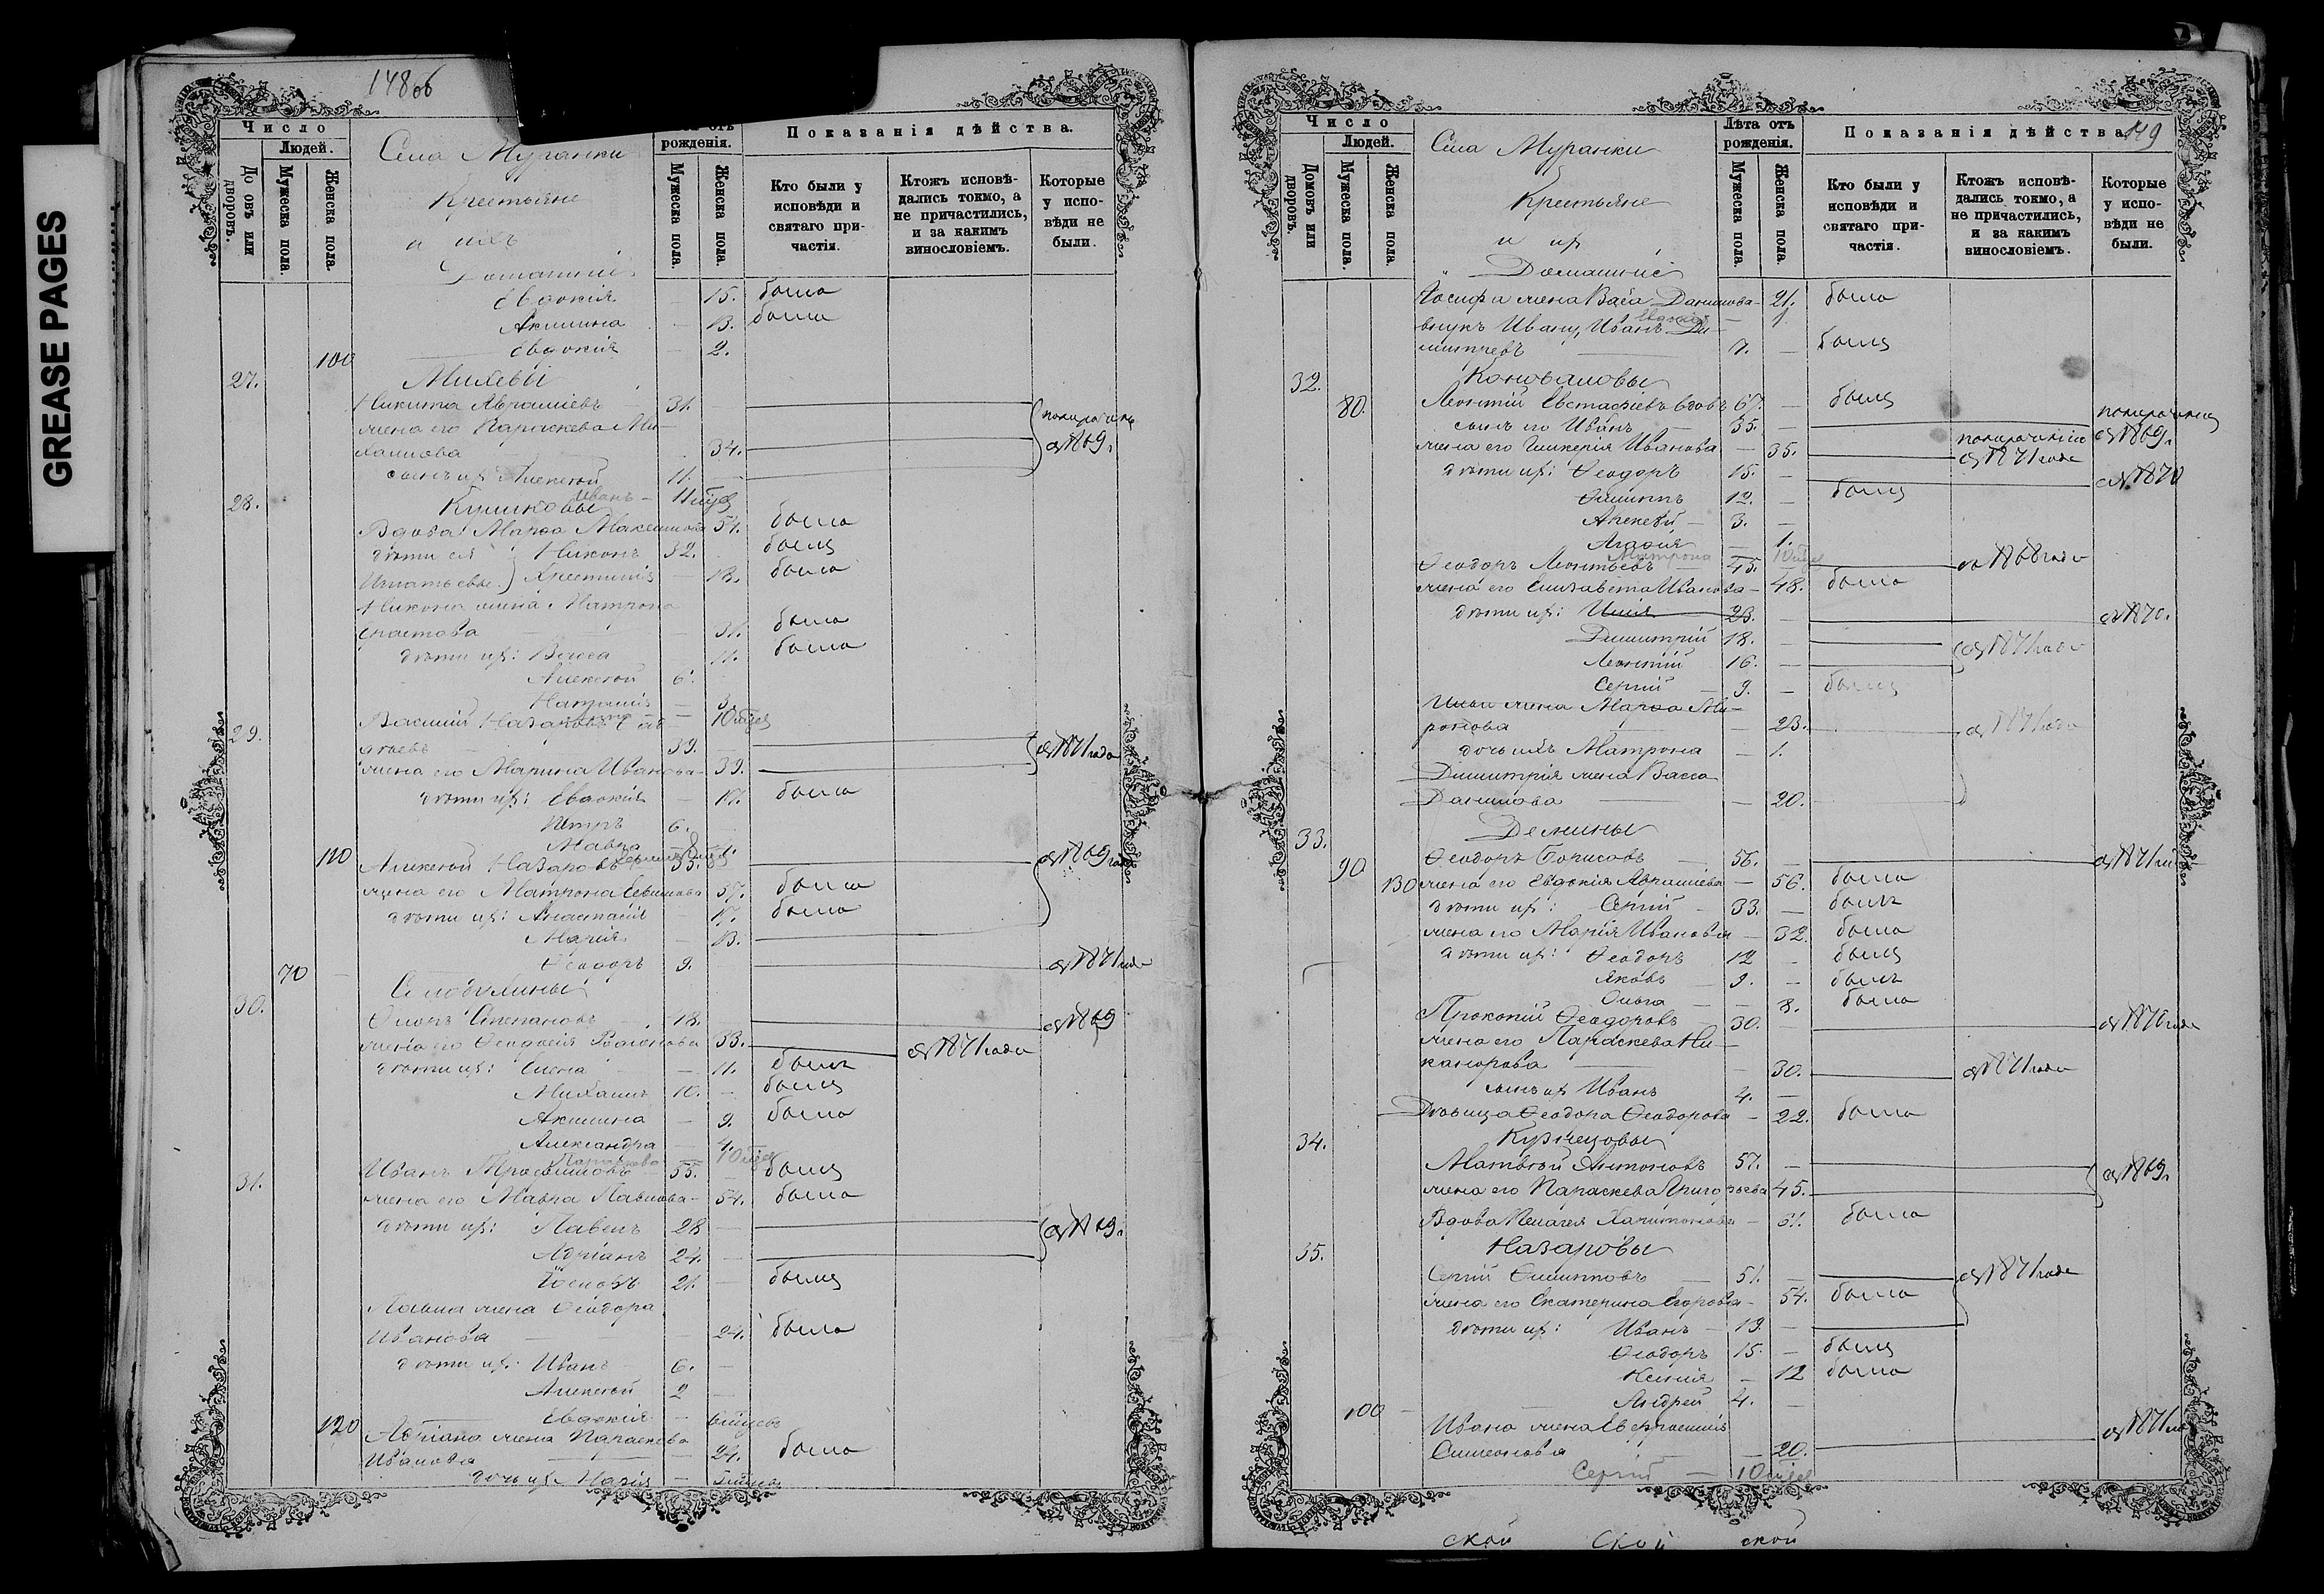 GREASE PAGES
148 об
Число
Людей.
рожденія.
Показанія дѣйства.
До овъ или дворовъ.
Мужеска пола.
Женска пола.
Мужеска пола.
Женска пола.
Кто были у исповѣди и святаго причастія.
Ктожъ исповѣдались токмо, а не причастились, и за какимъ винословіемъ.
Которые у исповѣди не были.
Села Муранки
Крестьяне
и ихъ
Домашніе
Евдокія — 15. была
Акилина — 13. была
100 Евдокія — 2.
27. Михевы
Никита Авраміевъ 31.
жена его Параскева Ми-
хаилова 34. съ 1869 г.
сынъ их Алексѣй 11.
28. Иванъ — 11 мѣс
Вдова Марѳа Максимова 51. была
дѣти ея Никонъ 32. былъ
Игнатьевы Христинія — 13. была
Никона жена Матрона
31. была
дѣти их: Васса 11. была
Алексѣй 6.
3.
29. Василій Назаровъ Сав-
10 мѣс
39. —
жена его Марина Иванова — 39. съ 1871 года
дѣти их: Евдокія — 17. была
Петръ 6.
Мавра 1.
110 Алексѣй Назаровъ 55. съ 1869 года
жена его Матрона 57. была
дѣти их: Анастасія 17. была
Марія — 13.
70 Ѳеодоръ 9. съ 1871 года
30. Степановъ 18. съ 1869
жена его Ѳеодосія Родіонова 33. съ 1871 года
дѣти их: Елена — 11. была
Михаилъ 10. — былъ
Акилина — 9. была
Александра — 4.
Параскева 10 мѣс
31. Иванъ Трофимовъ 55. былъ
жена его Мавра Павлова — 54. была
дѣти их: Павелъ 28 — съ 1869 г.
Адріанъ 24. —
Іосифъ 21. — былъ
Павла жена Ѳеодора
Иванова — 24. была
дѣти их: Иванъ 6. —
Алексѣй 2 —
120 Евдокія —
Адріана жена Параскева
Иванова — 24. была
дочь их Марія —
149
Число
Людей.
Лѣта отъ рожденія.
Показанія дѣйства
Домовъ или дворовъ.
Мужеска пола.
Женска пола.
Мужеска пола.
Женска пола.
Кто были у исповѣди и святаго причастія.
Ктожъ исповѣдались токмо, а не причастились, и за какимъ винословіемъ.
Которые у исповѣди не были.
Села Муранки
Крестьяне
и их
Домашніе
Іосифа жена Васса Данилова — 21. была
Евдокія 1.
внукъ Ивану, Иванъ Ди-
митріевъ 7. — былъ
32. Коноваловы
80. Леонтій Евстафіевъ вдовъ 67. — былъ
сынъ его Иванъ 35. съ 1869 г.
жена его Гликерія Иванова — 35. съ 1871 года
дѣти их: Ѳеодоръ 15. — съ 1870
Филиппъ 12. — былъ
Алексѣй — 3. —
Агафія — 1.
Матрона 10 мѣс
Ѳеодоръ Леонтьевъ 45. съ 1868 года
жена его Елизавета Иванова — 48. была
дѣти их: Илія 23. — съ 1870.
Димитрій 18. — съ 1871 года
Леонтій 16. —
Сергій 9. — былъ
Ильи жена Марѳа Ми-
ронова — 23. съ 1871 года
дочь ихъ Матрона — 1.
Димитрія жена Васса
Данилова — 20.
33. Демины
90 Ѳеодоръ Борисовъ 56. — съ 1871 г
130 жена его Евдокія Авраміева — 56. была
дѣти их: Сергій — 33. — былъ
жена его Марія Иванова — 32. была
дѣти их: Ѳеодоръ 12 — былъ
Яковъ 9. — былъ
Ольга — 8. была
Прокопій Ѳеодоровъ 30. съ 1870 года
жена его Параскева Ни-
канорова — 30. съ 1871 года
сынъ их Иванъ 4. —
Дѣвица Ѳеодора Ѳеодорова — 22. была
34. Кузнецовы
Матвѣй Антоновъ 57. — съ 1869 г.
жена его Параскева Григорьева 45.
Вдова Пелагея Харитонова — 31. была
35. Назаровы
Сергій Филипповъ — 51. — съ 1871 года
жена его Екатерина Егорова — 54. была
дѣти их: Иванъ — 19. —
Ѳеодоръ 15. — былъ
Ксенія — 12 была
100 Андрей 4. —
Ивана жена
Симеонова — 20. съ 1871 г
Сергій — 10 мѣс
ской ской ской